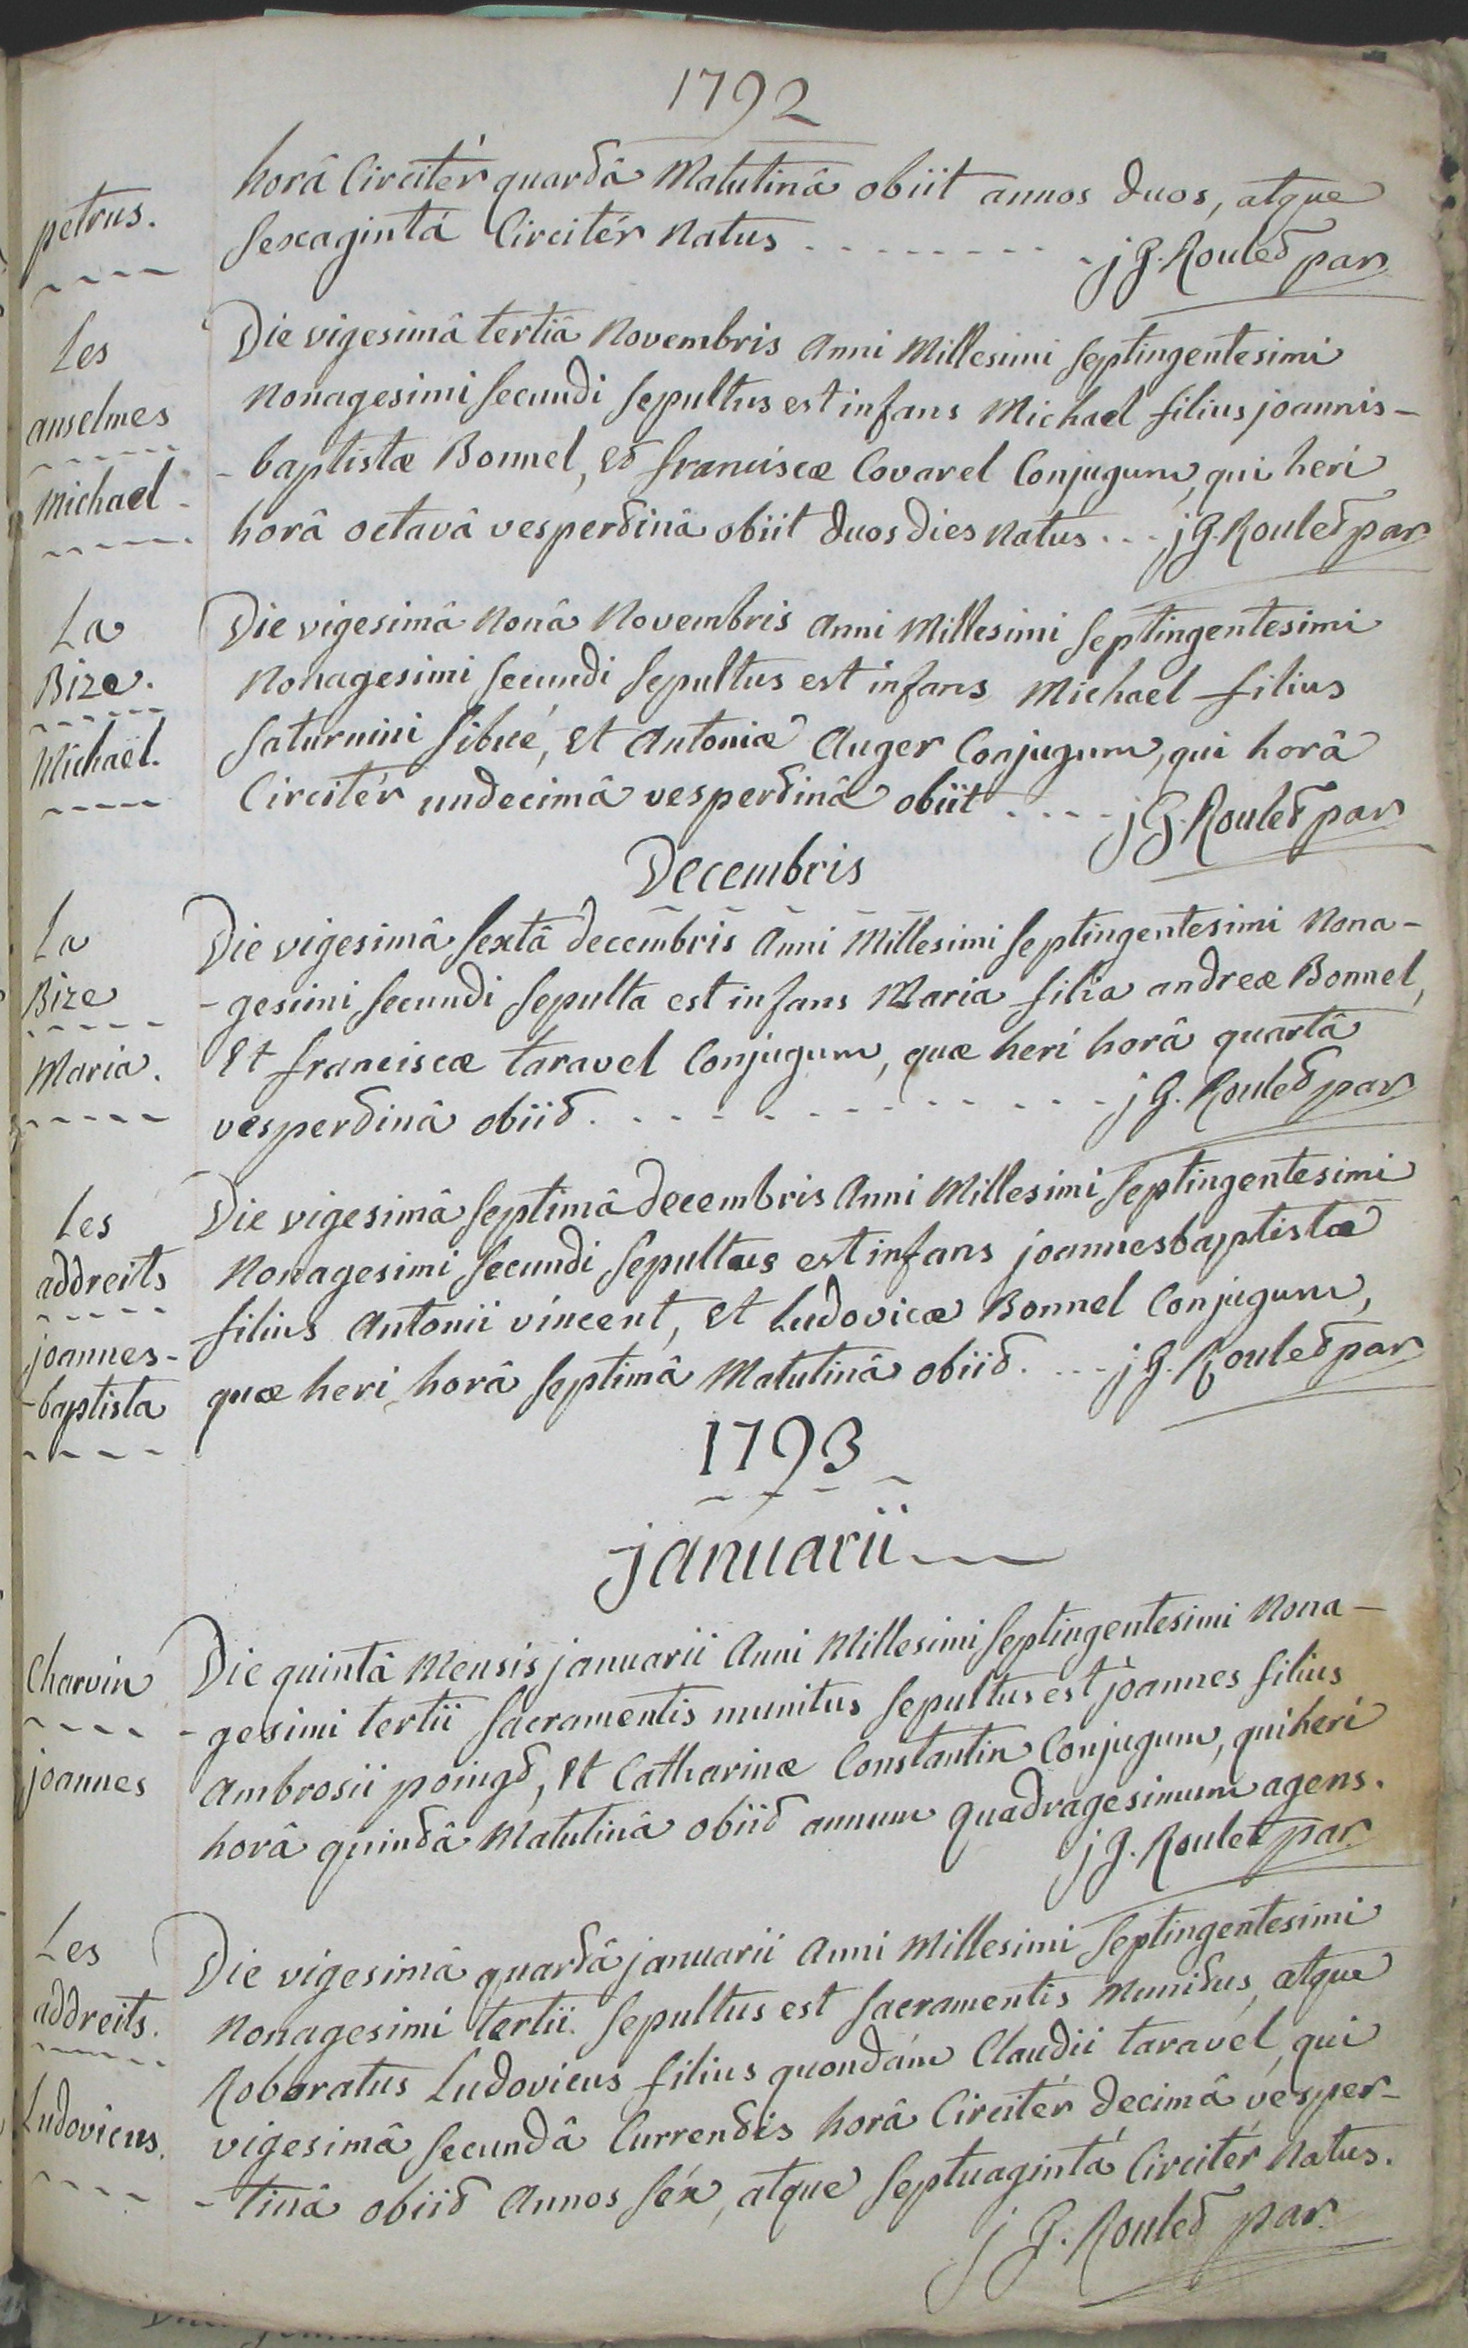 1792
petrus.
horâ Circitér quartâ Matutinâ obiit annos duos, atque
sexagintá Circitér Natus - - - - - - - - j G. Roulet par
Les
anselmes
Michael
Die vigesimâ tertiâ Novembris Anni Millesimi septingentesimi
Nonagesimi secundi sepultus est infans Michael filius joannis-
-baptistæ Bonnel, et franciscæ Covarel Conjugum, qui heri
horâ octavâ vespertinâ obiit duos dies Natus - - - j G. Roulet par
La
Bize.
Michaël.
Die vigesimâ Nonâ Novembris Anni Millesimi septingentesimi
Nonagesimi secundi sepultus est infans Michael filius
saturnini sibué, et Antoniæ Auger Conjugum, qui horâ
Circitér undecimâ vespertinâ obiit - - - - j G. Roulet par
Decembris
La
Bize
Maria.
Die vigesimâ sextâ decembris Anni Millesimi septingentesimi Nona-
-gesimi secundi sepulta est infans Maria filia andreæ Bonnel,
Et franciscæ taravel Conjugum, quæ heri horâ quartâ
vespertinâ obiit. - - - - - - - - - - - - - j G. Roulet par
Les
addreits
joannes-
-baptista
Die vigesimâ septimâ decembris Anni Millesimi septingentesimi
Nonagesimi secundi sepultus est infans joannesbaptista
filius Antonii vincent, et Ludovicæ Bonnel Conjugum,
quæ heri horâ septimâ Matutinâ obiit. - - - j G. Roulet par
1793
januarii
Charvin
joannes
Die quintâ Mensis januarii Anni Millesimi septingentesimi Nona-
-gesimi tertii sacramentis munitus sepultus est joannes filius
Ambrosii poingt, et Catharinæ Constantin Conjugum, qui heri
horâ quintâ Matutinâ obiit annum quadragesimum agens.
j G. Roulet par
Les
addreits.
Ludovicus.
Die vigesimâ quartâ januarii Anni Millesimi septingentesimi
Nonagesimi tertii sepultus est sacramentis Munitus, atque
Roboratus Ludovicus filius quondám Claudii taravel, qui
vigesimâ secundâ Currentis horâ Circitér decimâ vesper-
-tinâ obiit Annos séx, atque septuagintá Circitér Natus.
j G. Roulet par